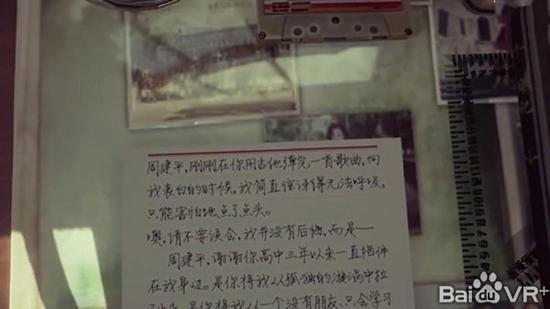 周建平，刚刚在你用吉他弹完一首歌曲，向
我表白的时候，我简直惊讶得无法呼吸，
只能害怕地点了点头。
噢，请不要误会，我并没有后悔，而是——
周建平，谢谢你高中三年以来一直陪伴
在我身边。是你将我从孤独的漩涡中拉
是你将我从一个没有朋友、只会学习
Baidu VR+